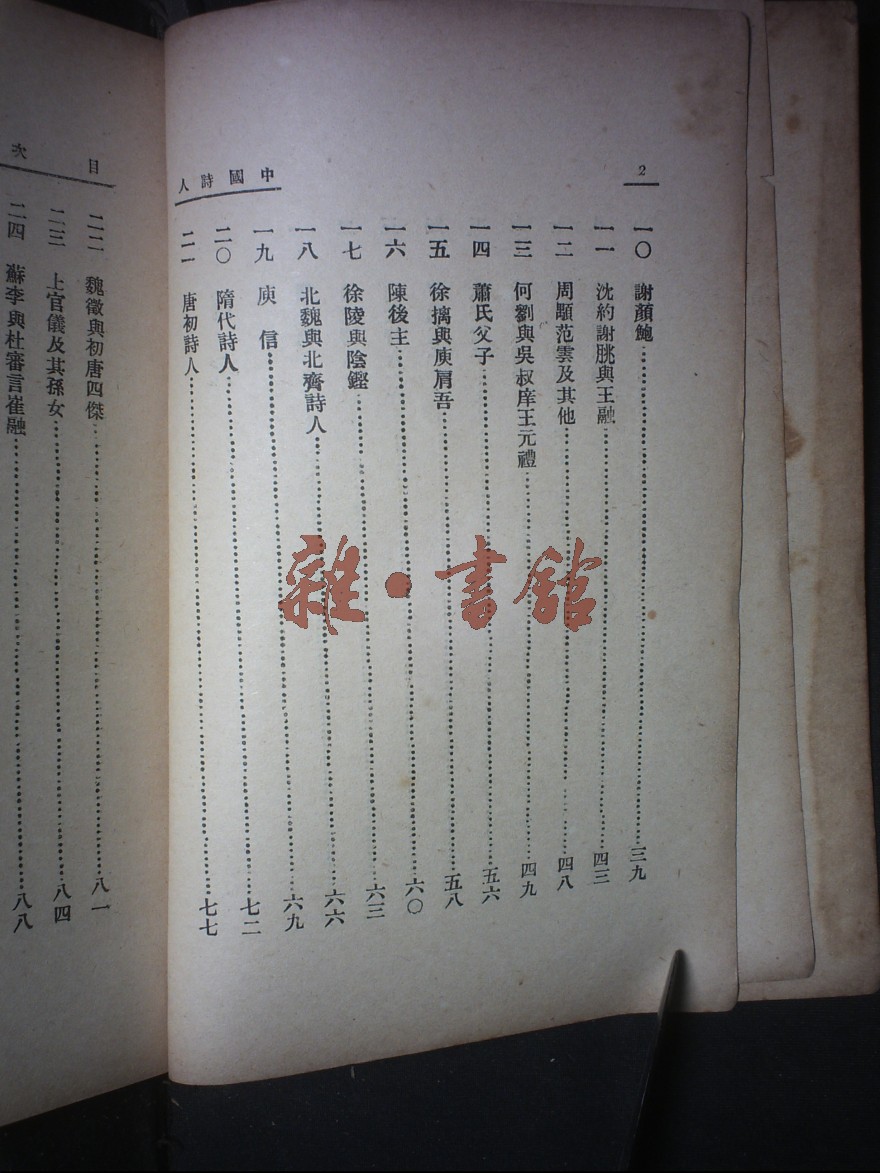 2
中國詩人
一〇 謝顏鮑 三九
一一 沈約謝朓與王融 四三
一二 周顒范雲及其他 四八
一三 何劉與吳叔庠王元禮 四九
一四 蕭氏父子 五六
一五 徐摛與庾肩吾 五八
一六 陳後主 六〇
一七 徐陵與陰鏗 六三
一八 北魏與北齊詩人 六六
一九 庾信 六九
二〇 隋代詩人 七二
二一 唐初詩人 七七
目次
二二 魏徵與初唐四傑 八一
二三 上官儀及其孫女 八四
二四 蘇李與杜審言崔融 八八
雜·書館